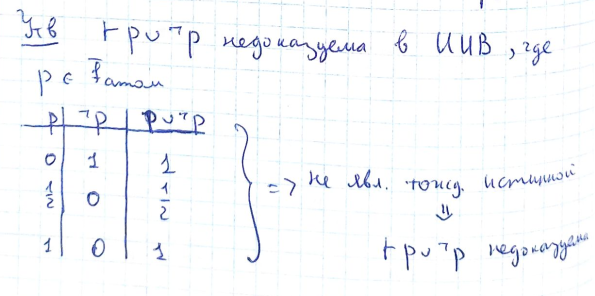 Утв ⊢ p∪¬p недоказуема в ИИВ, где
p ∈ Fатом
p | ¬p | p∪¬p
0 | 1 | 1
1/2 | 0 | 1/2
1 | 0 | 1
=> не явл. тожд. истинной
⇓
⊢ p∪¬p недоказуема